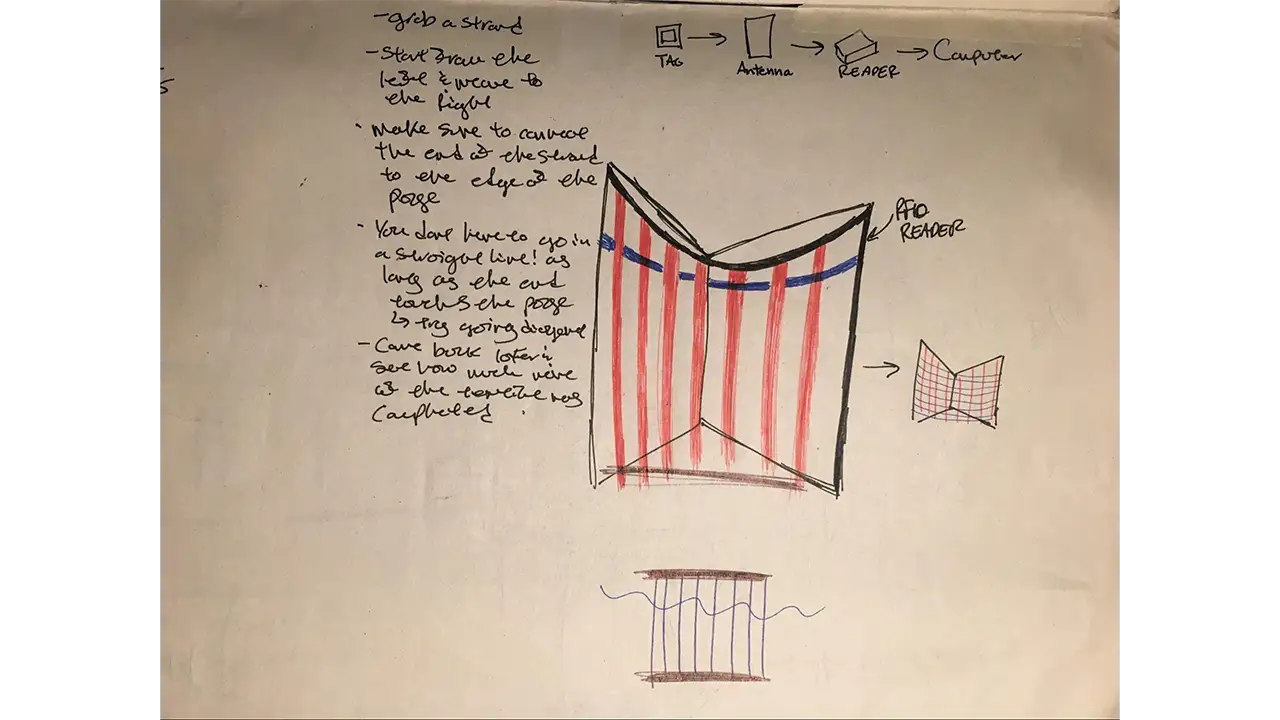 - grab a strand
- Start from the
left & weave to
the right
· Make sure to connect
the end of the strand
to the edge of the
page
· You dont have to go in
a straight line! as
long as the end
touches the page
↳ try going diagonal
- Come back later &
see how much more
of the textile was
Completed.
TAG → Antenna → READER → Computer
RFID
READER